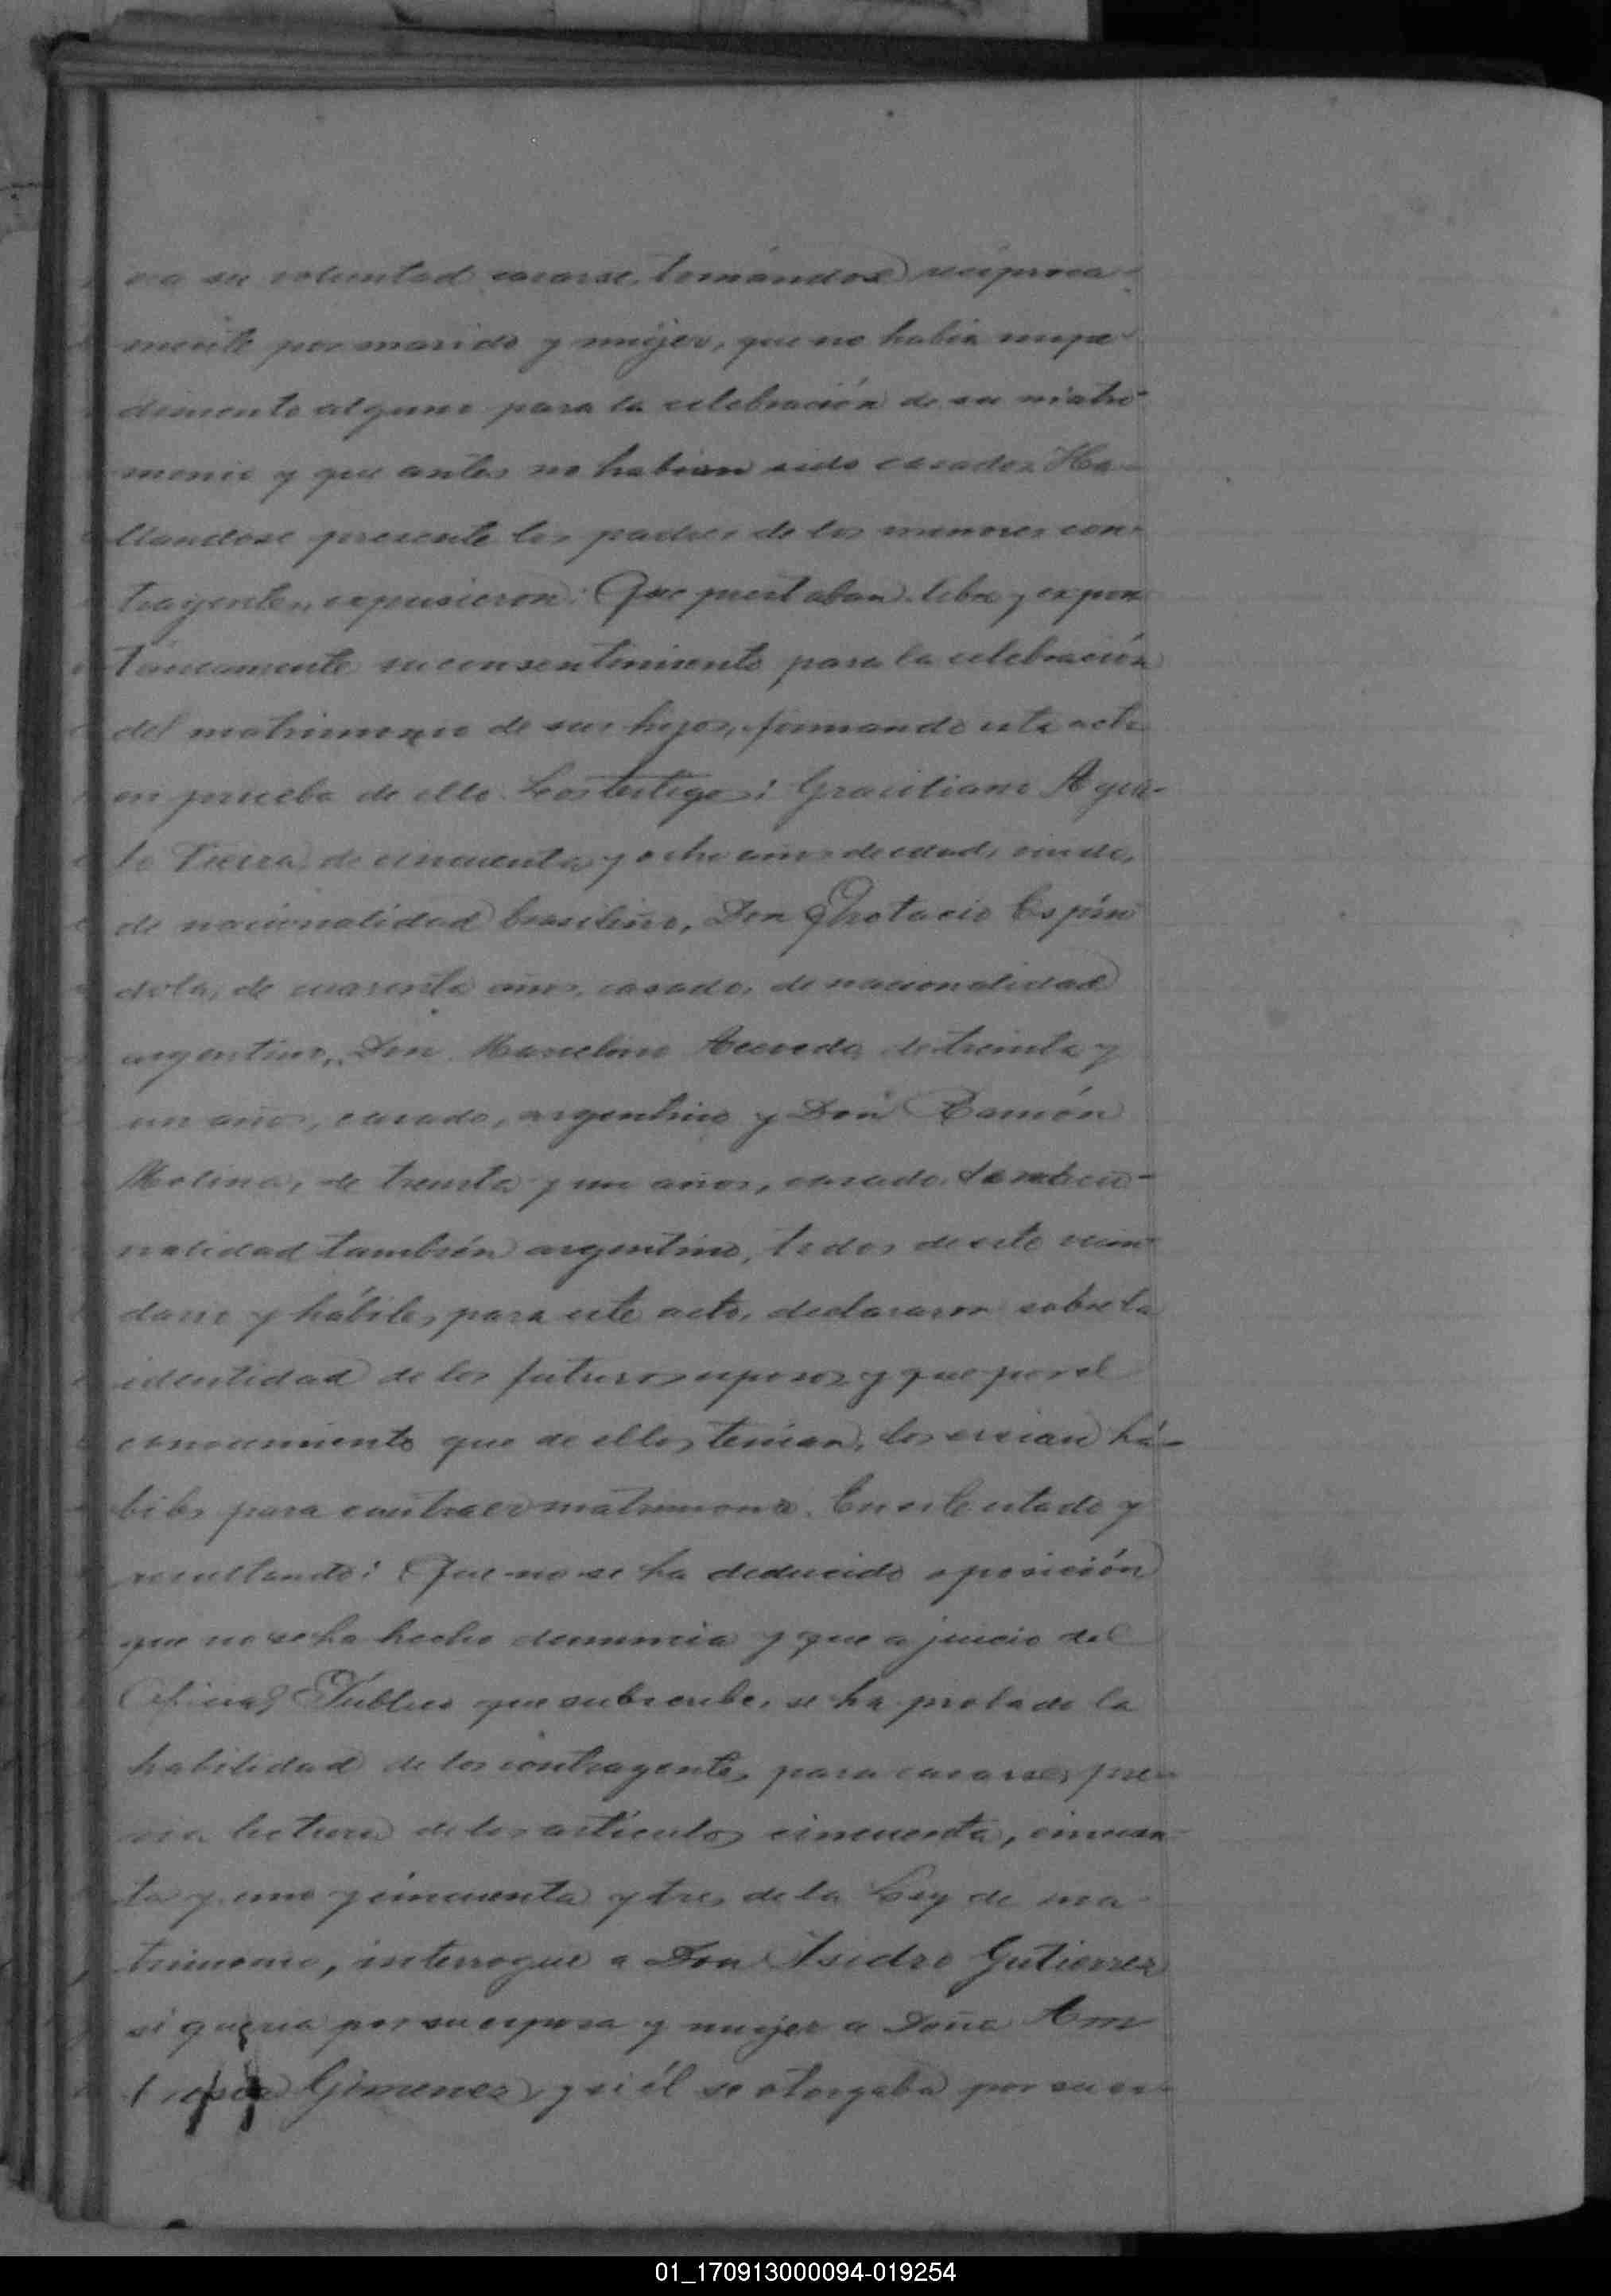 era su voluntad casarse, tomándose recíproca-
mente por marido y mujer, que no había impe-
dimento alguno para la celebración de su matri-
monio y que antes no habian sido casados. Ha-
llandose presente los padres de los menores con-
trayentes, expusieron: Que prestaban libre y expon
táneamente su consentimiento para la celebración
del matrimonio de sus hijos, firmando esta acta
en prueba de ello. Los testigos: Graciliano
Vieira, de cincuenta y ocho años de edad, viudo,
de nacionalidad brasilero, Don Protacio Espín
dola, de cuarenta años, casado, de nacionalidad
argentino, Don Marcelino Acevedo, de treinta y
un años, casado, argentino y Don Ramón
Molina, de treinta y un años, casado,
nalidad también argentino, todos de este vecin-
dario y hábiles para este acto, declararon sobre la
identidad de los futuros esposos y que por el
conocimiento que de ellos tenian, los creian há-
biles para contraer matrimonio. En este estado y
resultando: Que no se ha deducido oposición
que no se ha hecho denuncia y que a juicio del
Oficial Público que subscribe, se ha probado la
habilidad de los contrayentes para casarse, pre-
via lectura de los artículos cincuenta, cincuen-
ta y uno y cincuenta y tres de la Ley de ma-
trimonio, interrogué a Don Isidro Gutierrez
si queria por su esposa y mujer a Doña
Gimenez y si él se otorgaba por su es-
01_170913000094-019254